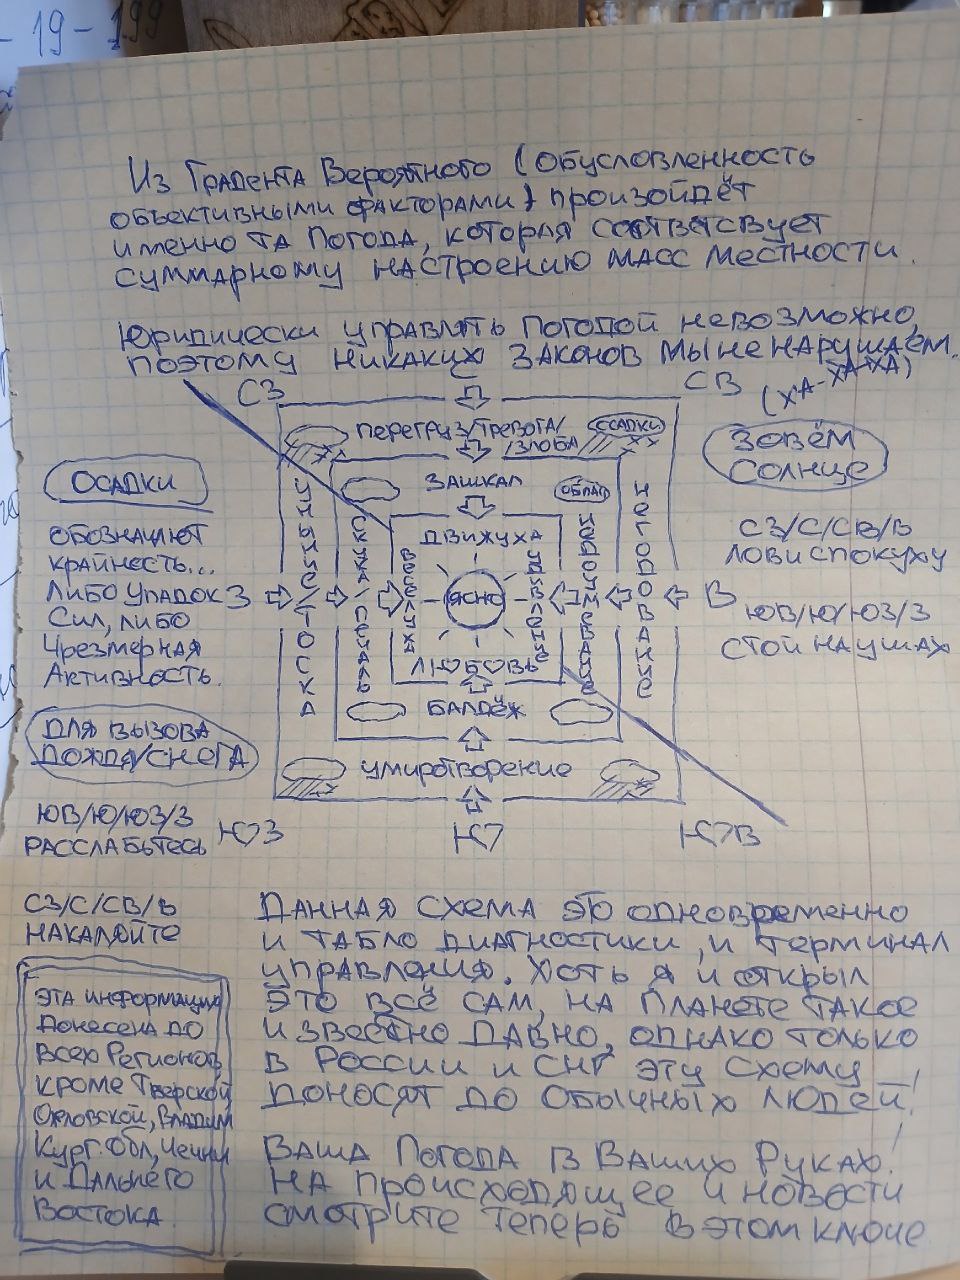 - 19 - 199
Из Градента Вероятного (обусловленность
объективными факторами) произойдёт
именно та погода, которая соответсвует
суммарному настроению масс местности.
Юридически управлять погодой невозможно,
поэтому никаких законов мы не нарушаем.
(ха-ха-ха)
СЗ
С
СВ
перегруз/тревога/
/злоба
осадки
зашкал
облач
движуха
уныние/тоска
скука/печаль
веселуха
ясно
удивление
недоумевание
негодование
З
В
любовь
балдёж
умиротворение
ЮЗ
Ю
ЮВ
осадки
обозначают
крайность...
либо упадок
сил, либо
чрезмерная
активность.
для вызова
дождя/снега
ЮВ/Ю/ЮЗ/З
расслабьтесь
СЗ/С/СВ/В
накаляйте
Зовём
Солнце
СЗ/С/СВ/В
лови спокуху
ЮВ/Ю/ЮЗ/З
стой на ушах
эта информация
донесена до
всех регионов
кроме Тверской
Орловской, Владим
Кург. обл, Чечни
и Дальнего
Востока.
Данная схема это одновременно
и табло диагностики, и терминал
управления. Хоть я и открыл
это всё сам, на планете такое
известно давно, однако только
в России и СНГ эту схему
доносят до обычных людей!
Ваша погода в Ваших руках!
На происходящее и новости
смотрите теперь в этом ключе